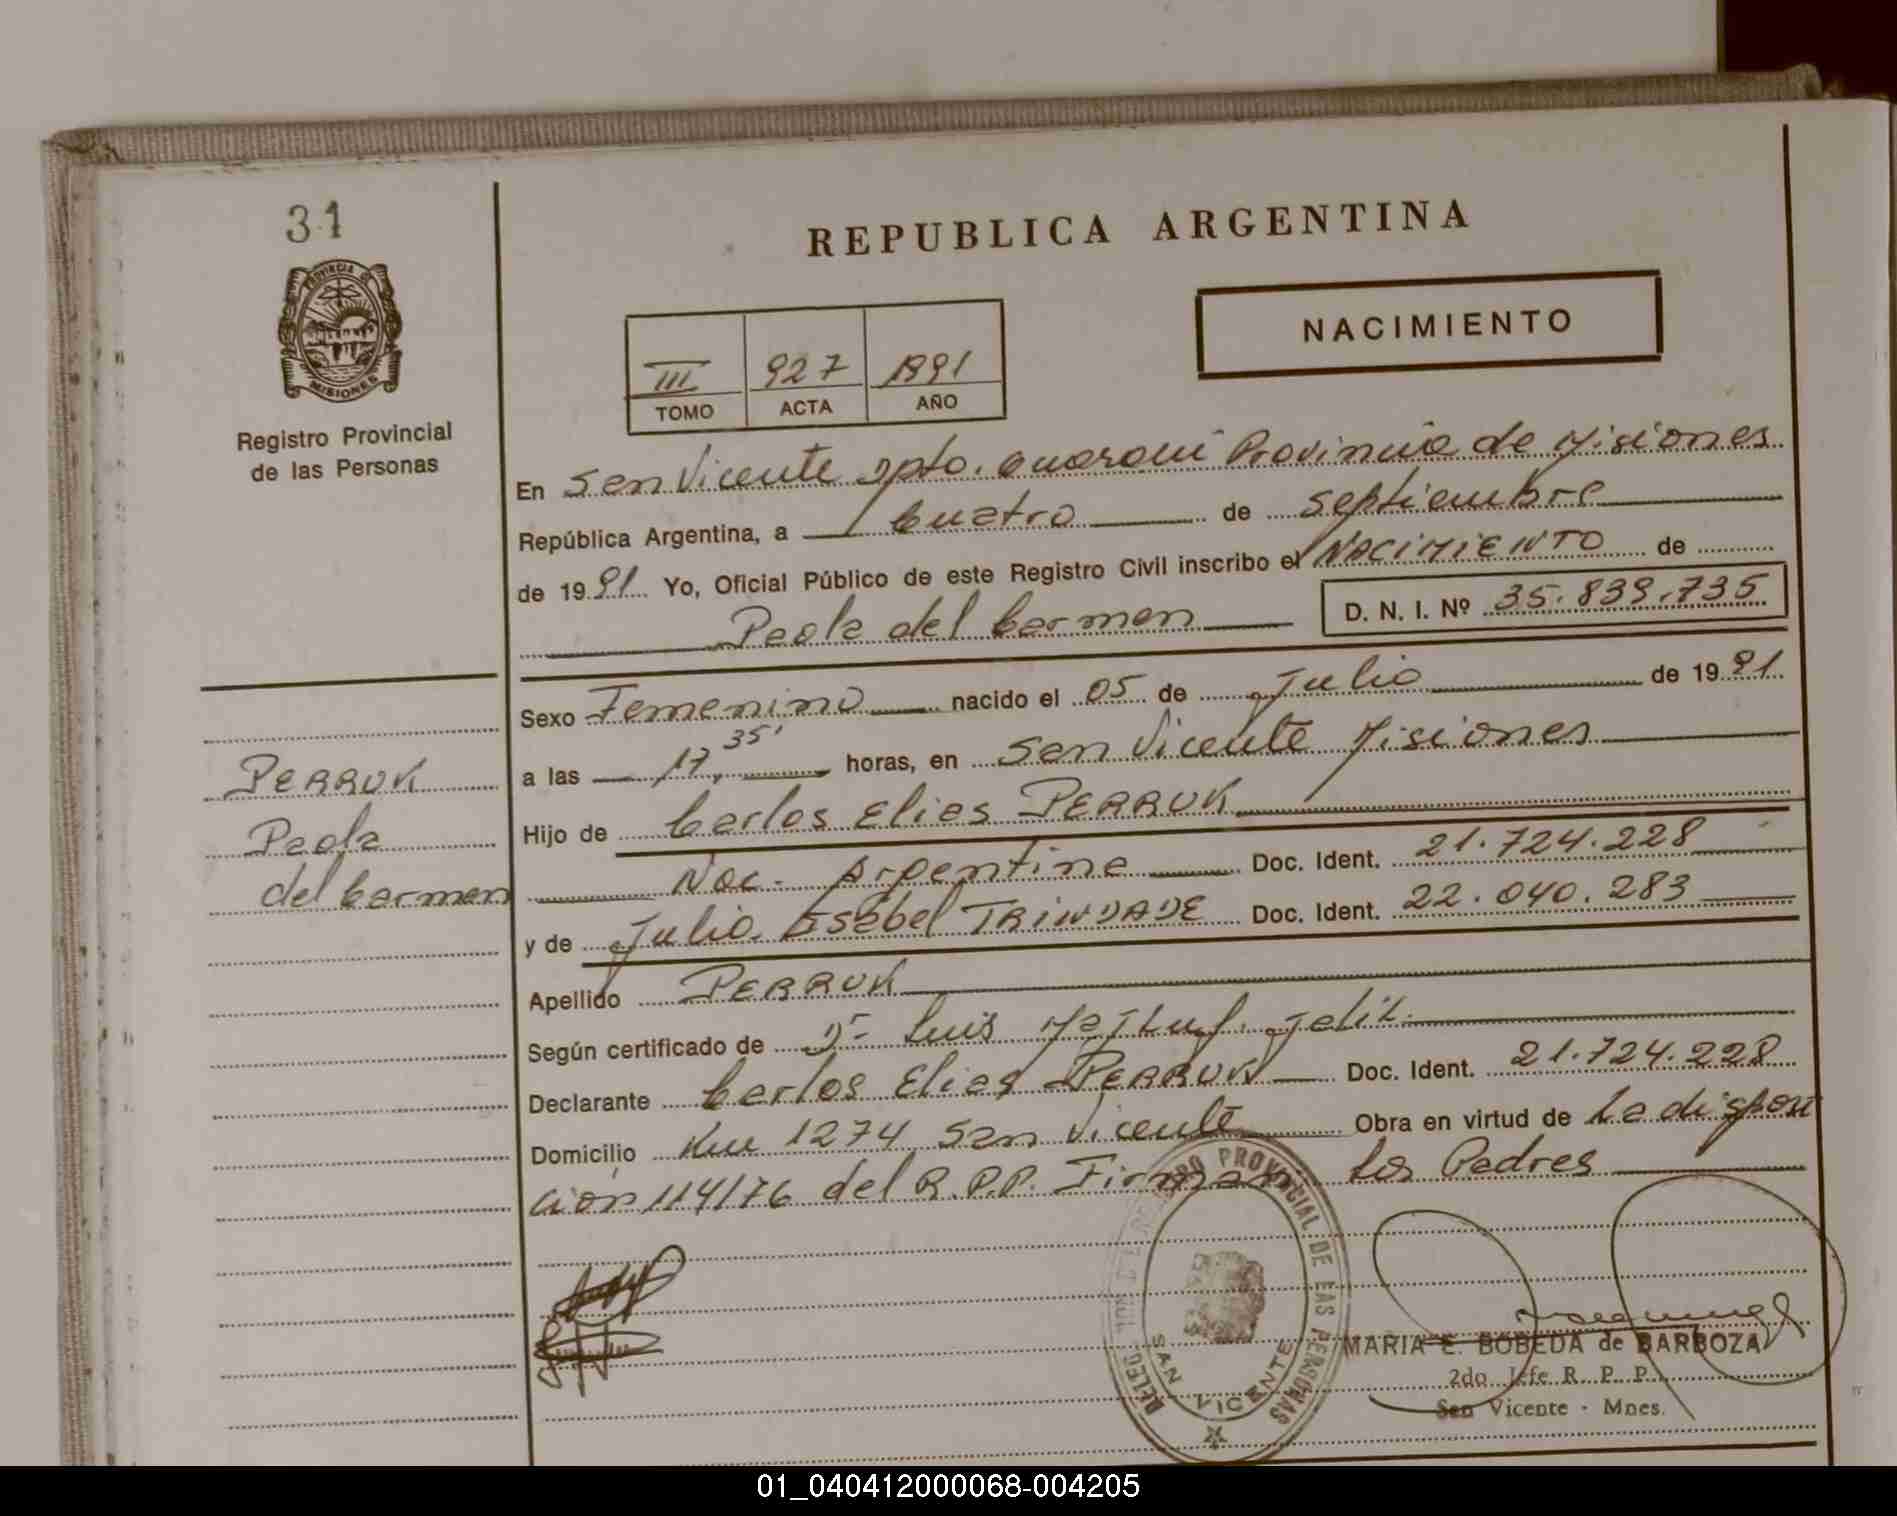 31
PROVINCIA DE
MISIONES
Registro Provincial
de las Personas
REPUBLICA ARGENTINA
NACIMIENTO
III 927 1991
TOMO ACTA AÑO
En San Vicente Dpto. Guaraní Provincia de Misiones
República Argentina, a Cuatro de septiembre
de 1991 Yo, Oficial Público de este Registro Civil inscribo el NACIMIENTO de
Paola del Carmen D. N. I. Nº 35.839.735
Sexo Femenino nacido el 05 de Julio de 1991
a las 17,35' horas, en San Vicente Misiones
Hijo de Carlos Elias PERRUK
Nac. Argentina Doc. Ident. 21.724.228
y de Julia Isabel TRINDADE Doc. Ident. 22.040.283
Apellido PERRUK
Según certificado de Dr Luis
Declarante Carlos Elias PERRUK Doc. Ident. 21.724.228
Domicilio Km 1274 San Vicente Obra en virtud de La disposi
ción 114/76 del R.P.P. Firman Los Padres
PERRUK
Paola
del Carmen
PROVINCIAL DE LAS PERSONAS
SAN VICENTE
MARIA E. BOBEDA de BARBOZA
2do Jefe R. P. P.
San Vicente - Mnes.
01_040412000068-004205